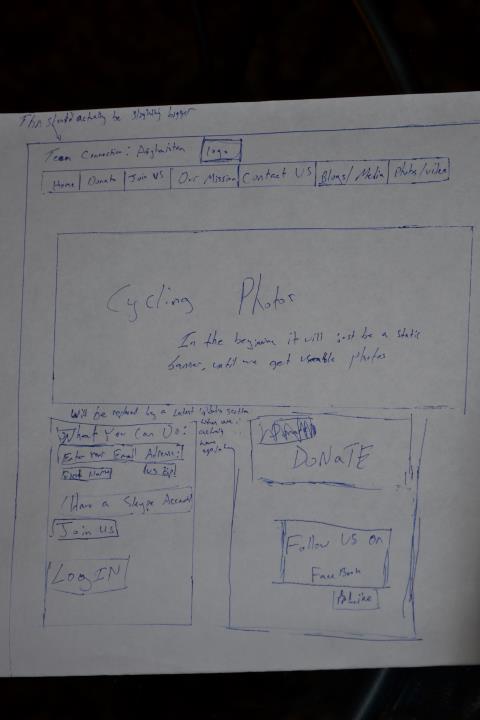 This should actually be slightly bigger
Team Connection: Afghanistan
Logo
Home
Donate
Join US
Our Mission
Contact US
Blogs/Media
Photos/video
Cycling Photos
In the beginning it will just be a static
banner, until we get useable photos
Will be replaced by a latest updates section
when we
actually
have
What You Can Do:
Enter your Email Address:
First Name
US Zip
I Have a Skype Account
Join US
LogIN
DONaTE
Follow US On
FaceBook
Like